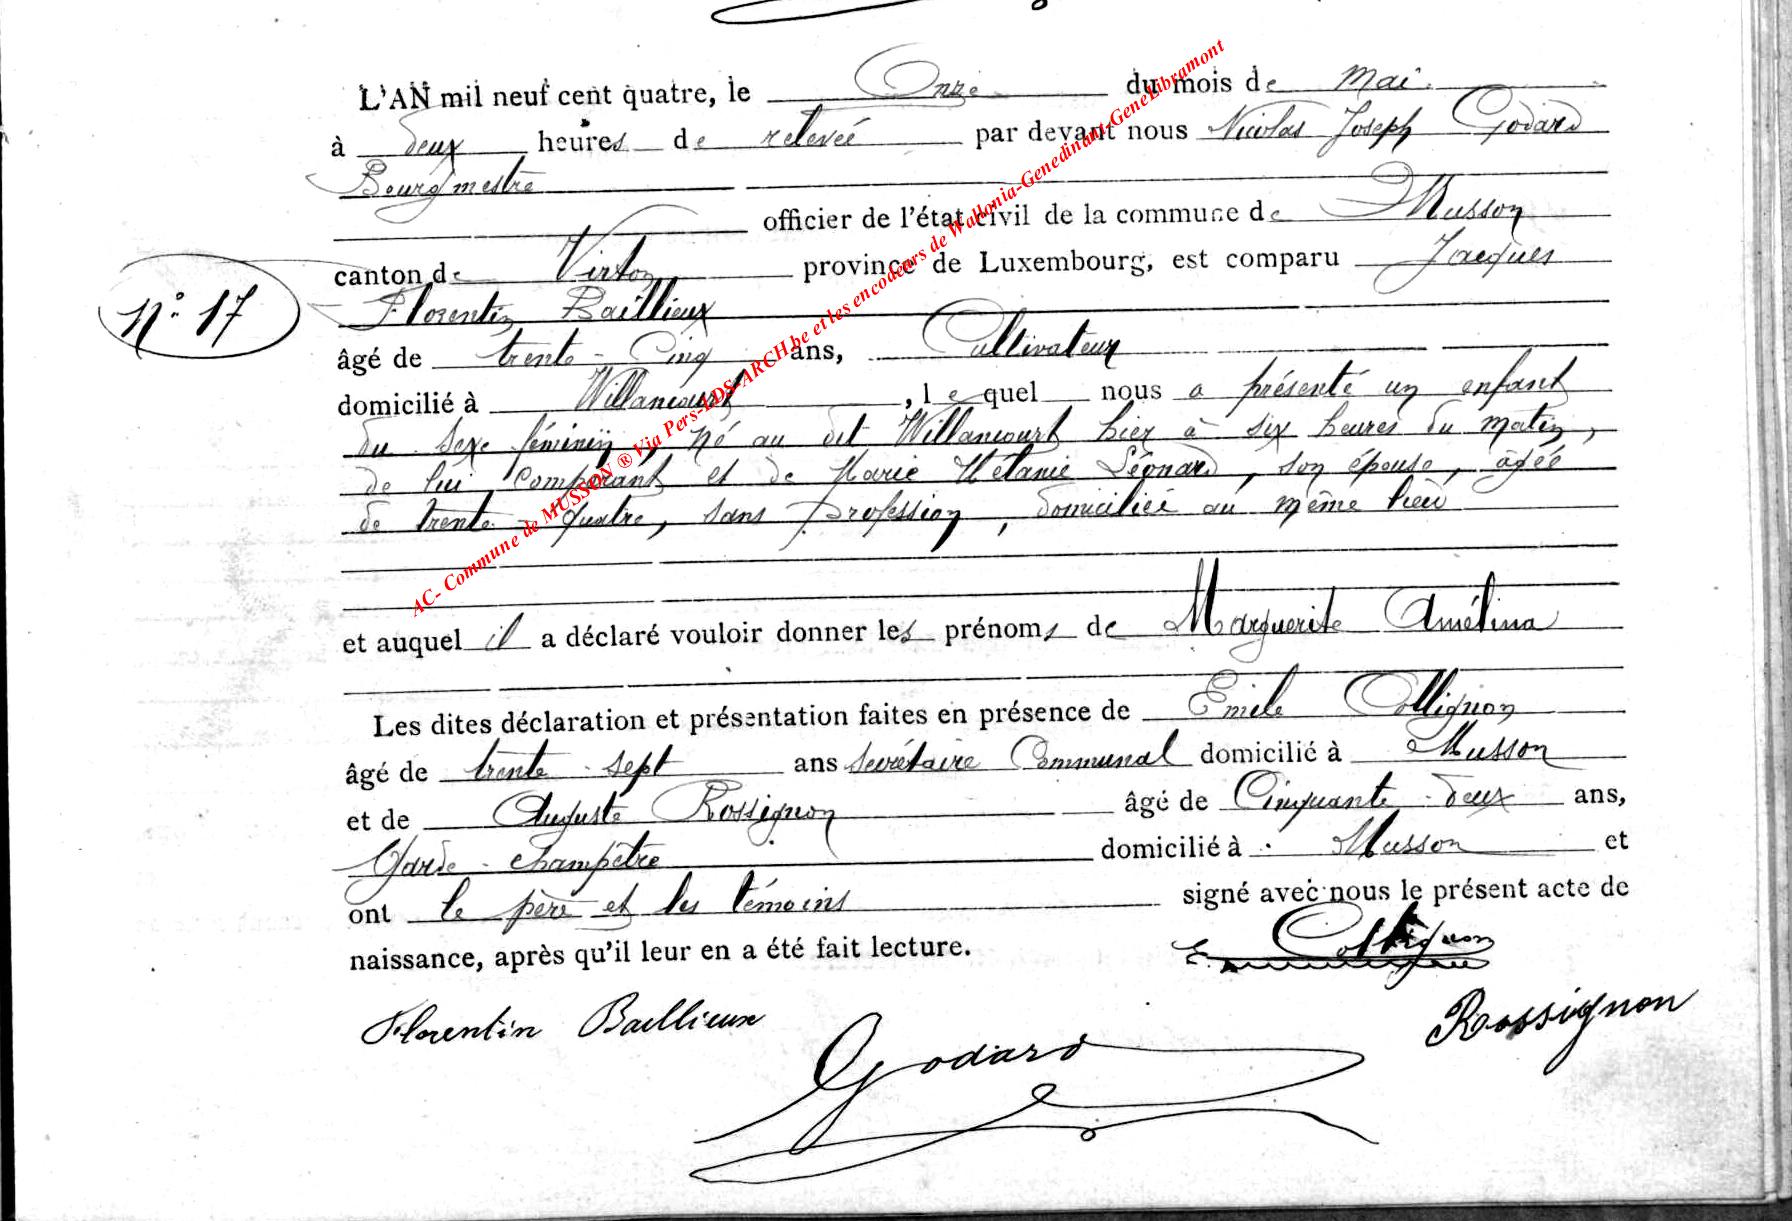 L'AN mil neuf cent quatre, le Onze du mois de mai.
à deux heures de relevée par devant nous Nicolas Joseph Godard
Bourgmestre
officier de l'état civil de la commune de Musson
canton de Virton province de Luxembourg, est comparu Jacques
N° 17
Florentin Baillieux
âgé de trente-Cinq ans, Cultivateur
domicilié à Willancourt, lequel nous a présenté un enfant
du sexe féminin, né au dit Willancourt hier à six heures du matin,
de lui comparant et de Marie Mélanie Léonard, son épouse, âgée
de trente-quatre, sans profession, domiciliée au même lieu
et auquel il a déclaré vouloir donner les prénoms de Marguerite Amélina
Les dites déclaration et présentation faites en présence de Emile Collignon
âgé de trente-sept ans secrétaire Communal domicilié à Musson
et de Auguste Rossignon âgé de Cinquante-deux ans,
Garde-champêtre domicilié à Musson et
ont le père et les témoins signé avec nous le présent acte de
naissance, après qu'il leur en a été fait lecture.
E. Collignon
Florentin Baillieux
Godard
Rossignon
AC- Commune de MUSSON ® Via Pers-LDS-ARCH.be et les encodeurs de Wallonia-Genedinant-GeneLibramont